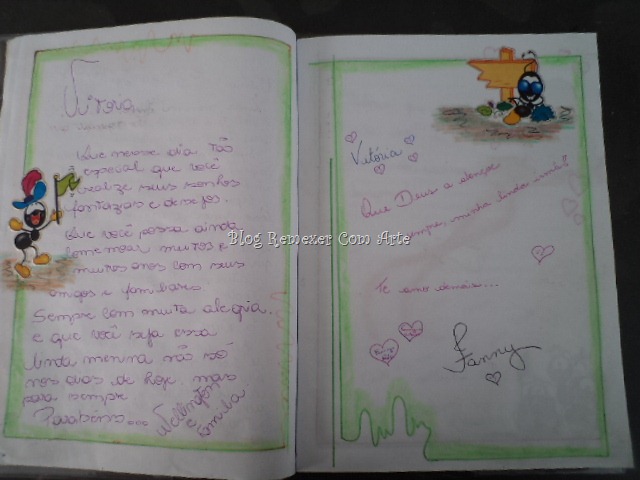 Vitória
Que nesse dia tão
especial que você
realize seus sonhos
fantazias e desejos.
Que você possa ainda
comemorar muitos e
muitos anos com seus
amigos e familiares.
Sempre com muita alegria.
e que você seja essa
linda menina não só
nos dias de hoje, mas
para sempre
Parabéns...
e família
Vitória
Que Deus a abençoe
sempre, minha linda
Te amo demais...
Fanny
Blog Remexer Com Arte